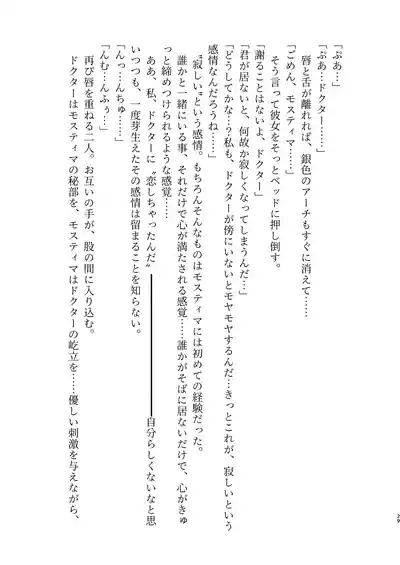 「ぷあ…」
「ぷあ…ドクター……」
唇と舌が離れれば、銀色のアーチもすぐに消えて…
「ごめん、モスティマ……」
そう言って彼女をそっとベッドに押し倒す。
「謝ることはないよ、ドクター」
「君が居ないと、何故か寂しくなってしまうんだ…」
「どうしてかな…？私も、ドクターが傍にいないとモヤモヤするんだ…きっとこれが、寂しいという
感情なんだろうね…」
“寂しい”という感情。もちろんそんなものはモスティマには初めての経験だった。
誰かと一緒にいる事、それだけで心が満たされる感覚……誰かがそばに居ないだけで、心がきゅ
っと締めつけられるような感覚…
ああ、私、ドクターに〝恋しちゃったんだ〟――――――――自分らしくないなと思
いつつも、一度芽生えたその感情は留まることを知らない。
「んっ…んちゅ……」
「んむ…んふぅ…」
再び唇を重ねる二人。お互いの手が、股の間に入り込む。
ドクターはモスティマの秘部を、モスティマはドクターの屹立を……優しい刺激を与えながら、
29